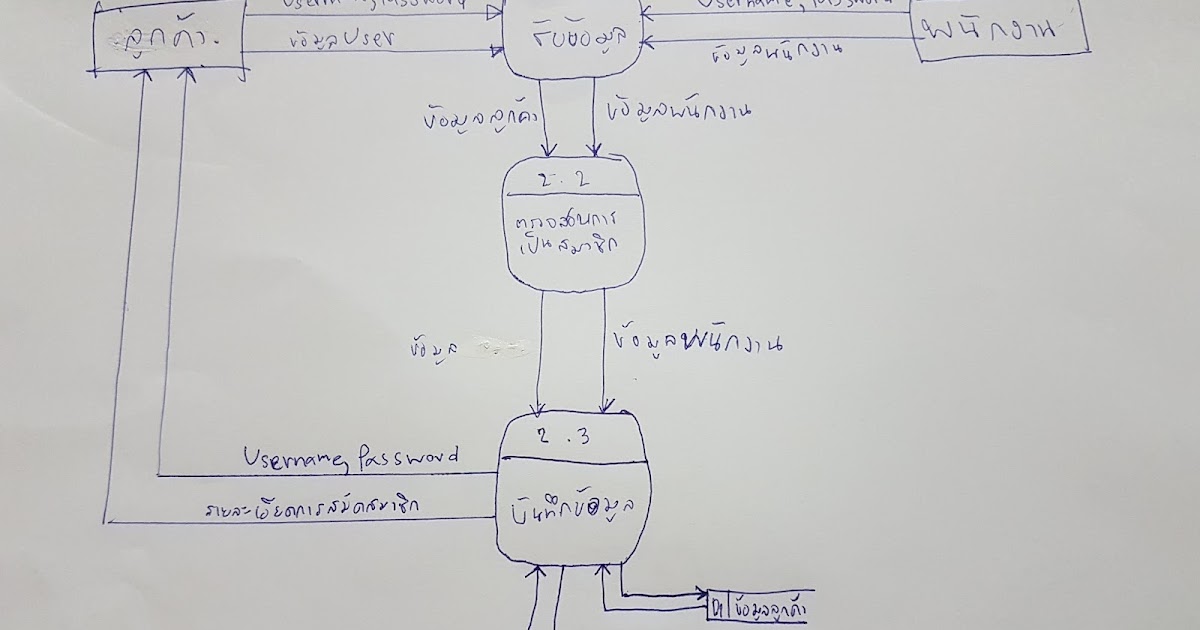 Password
Username, Password
ลูกค้า
ข้อมูลUser
รับข้อมูล
ข้อมูลพนักงาน
พนักงาน
ข้อมูลลูกค้า
ข้อมูลพนักงาน
2.2
ตรวจสอบการ
เป็นสมาชิก
ข้อมูล
ข้อมูลพนักงาน
2.3
Username, Password
บันทึกข้อมูล
รายละเอียดการสมัคสมาชิก
D1 ข้อมูลลูกค้า